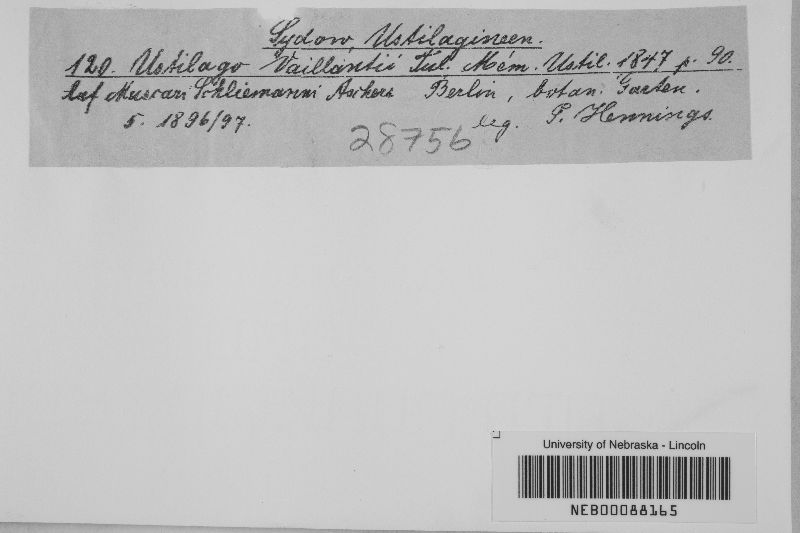 Sydow, Ustilagineen.
120. Ustilago Vaillantii Tul. Mém. Ustil. 1847 p. 90.
Auf Muscari Schliemanni Aschers Berlin, botan. Garten.
5. 1896/97. leg. P. Hennings.
28756
University of Nebraska - Lincoln
NEB00088165